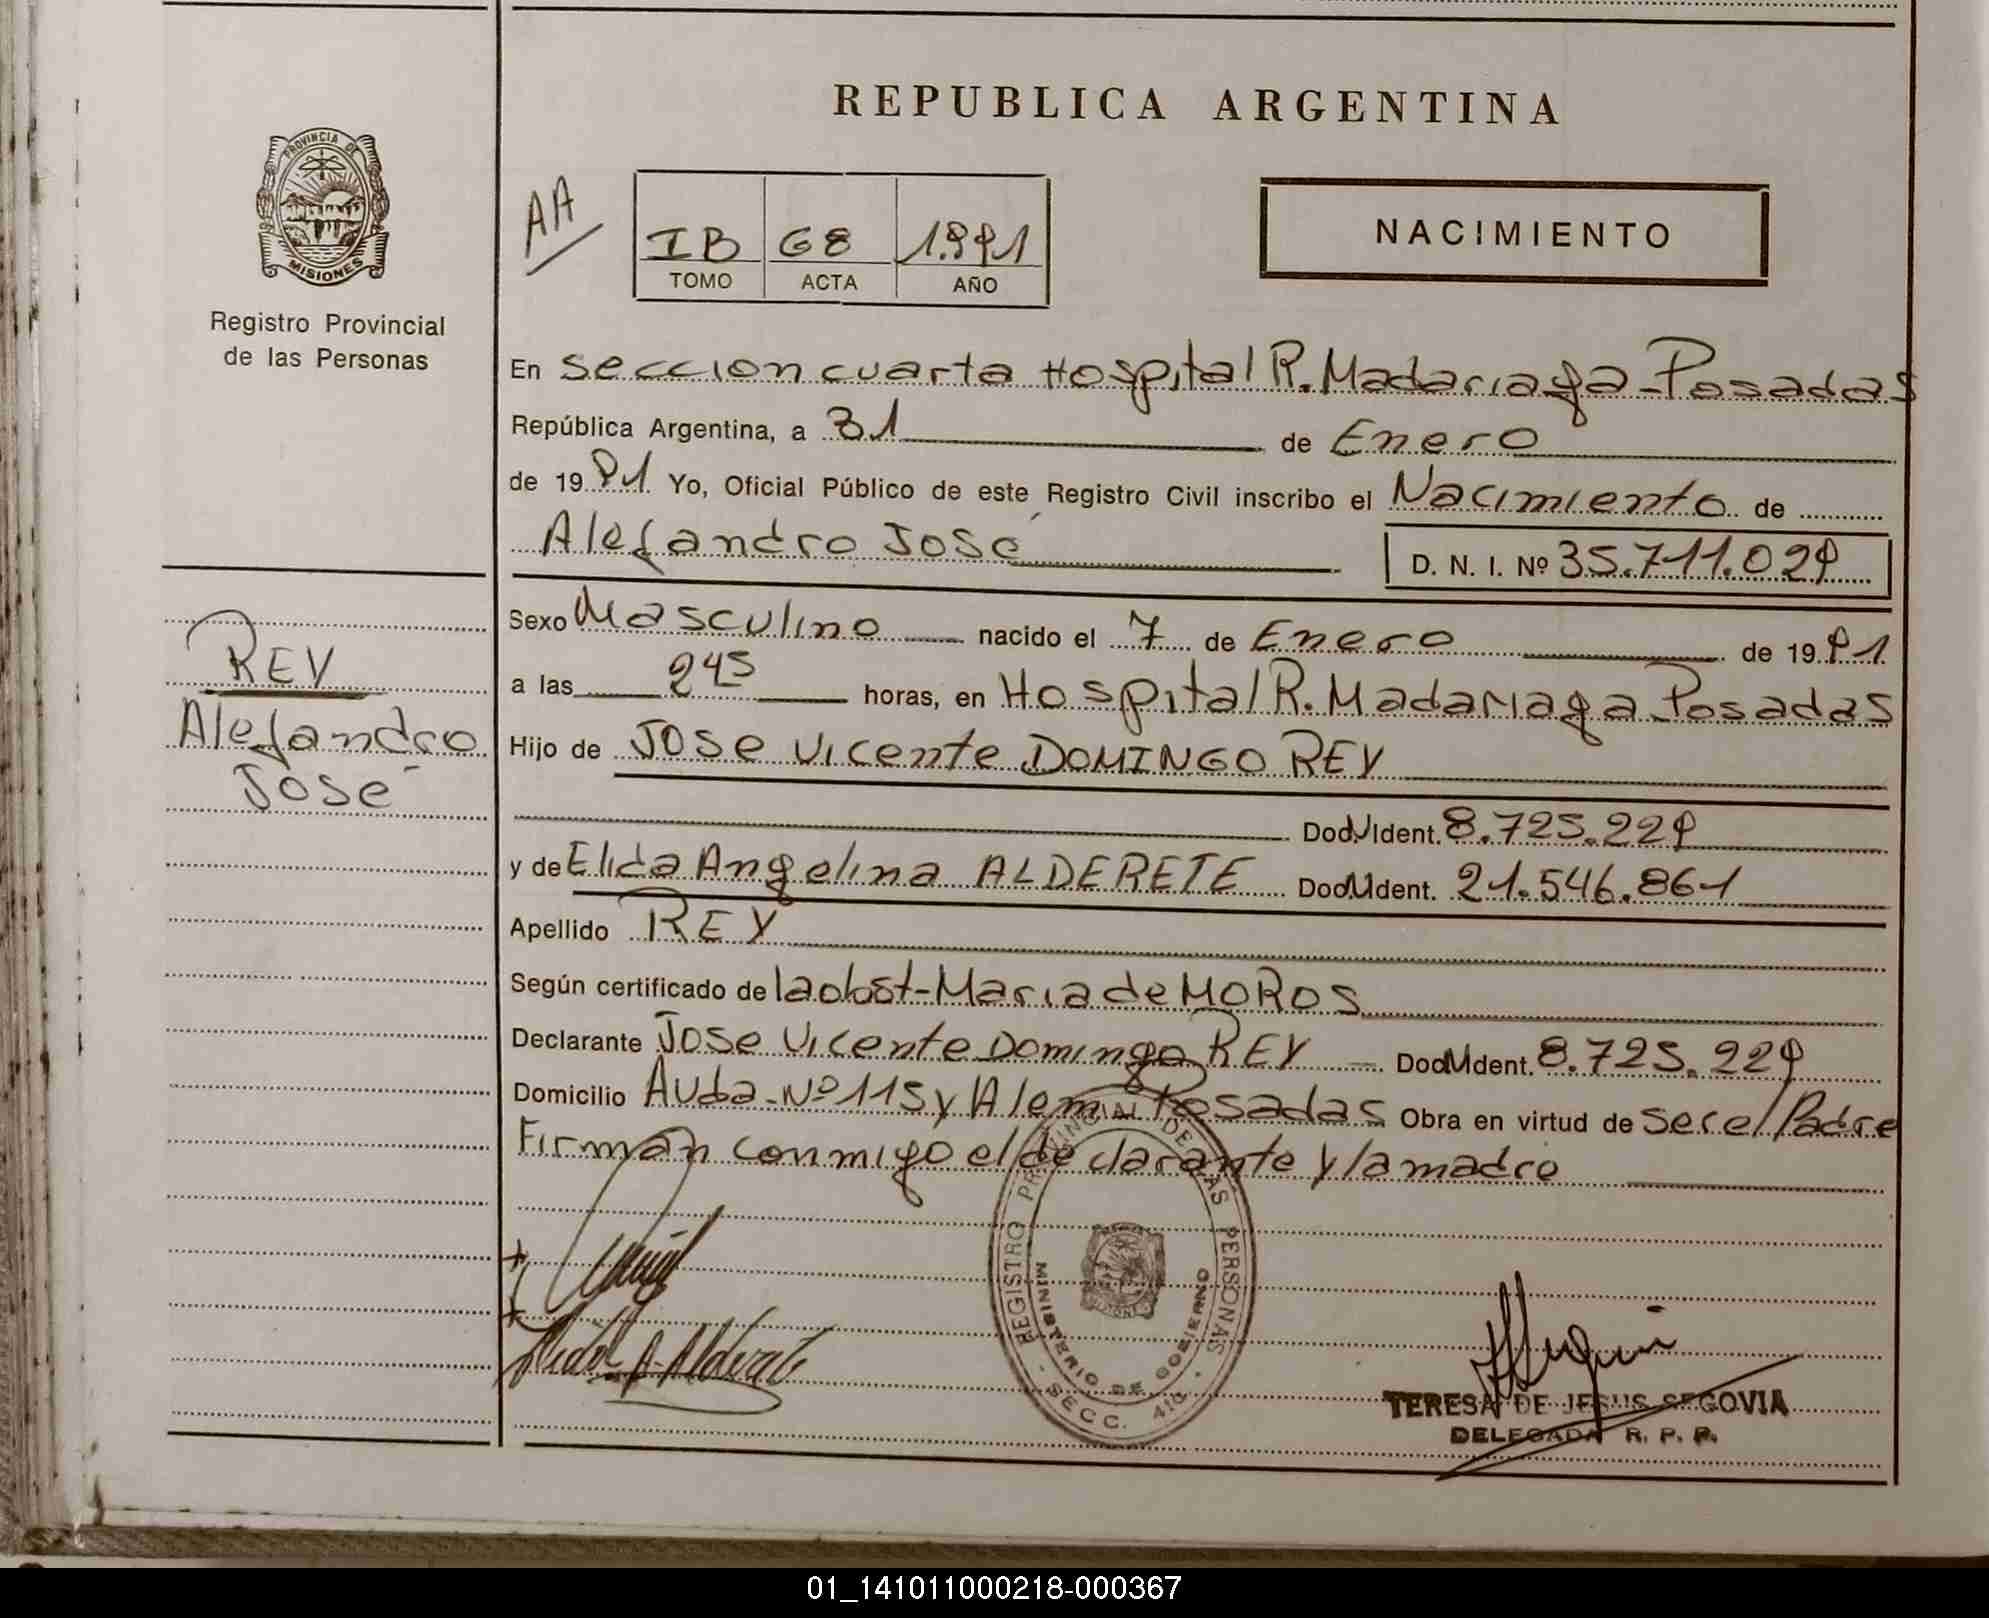 REPUBLICA ARGENTINA
PROVINCIA DE
MISIONES
Registro Provincial
de las Personas
AA
IB 68 1.991
TOMO ACTA AÑO
NACIMIENTO
En seccion cuarta Hospital R. Madariaga - Posadas
República Argentina, a 31 de Enero
de 19 91 Yo, Oficial Público de este Registro Civil inscribo el Nacimiento de
Alejandro José D. N. I. Nº 35.711.029
Sexo Masculino nacido el 7 de Enero de 19 91
a las 2 45 horas, en Hospital R. Madariaga Posadas
Hijo de Jose Vicente DOMINGO REY
Doc. Ident. 8.725.229
y de Elida Angelina ALDERETE Doc. Ident. 21.546.861
Apellido REY
Según certificado de la obst - Maria de MOROS
Declarante Jose Vicente Domingo REY Doc. Ident. 8.725.229
Domicilio Avda - Nº 115 y Alem Posadas Obra en virtud de ser el Padre
Firman conmigo el declarante y la madre
REY
Alejandro
José
REGISTRO PROVINCIAL DE LAS PERSONAS
MINISTERIO DE GOBIERNO
- SECC. 4ta -
A. Alderete
TERESA DE JESUS SEGOVIA
DELEGADA R. P. P.
01_141011000218-000367